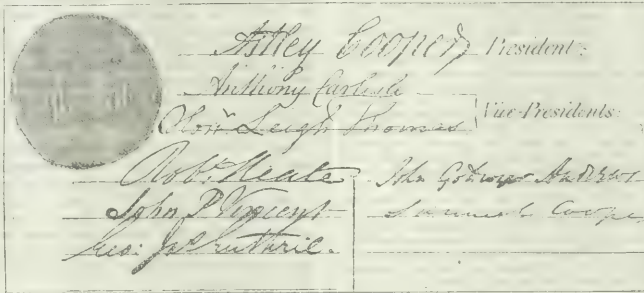 Astley Cooper President:
Anthony Carlisle
Honr. Leigh Thomas Vice-Presidents:
Robt. Keate
John P Vincent
Geo: Jas Guthrie.
John Goldwyer Andrews
Samuel Cooper